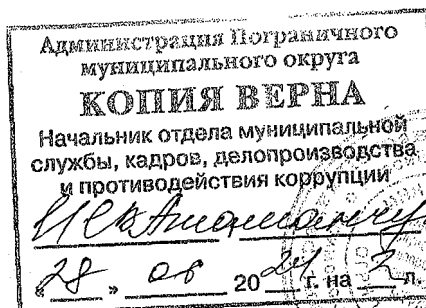 Администрация Пограничного
муниципального округа
КОПИЯ ВЕРНА
Начальник отдела муниципальной
службы, кадров, делопроизводства
и противодействия коррупции
"28" 06 2021 г. на л.